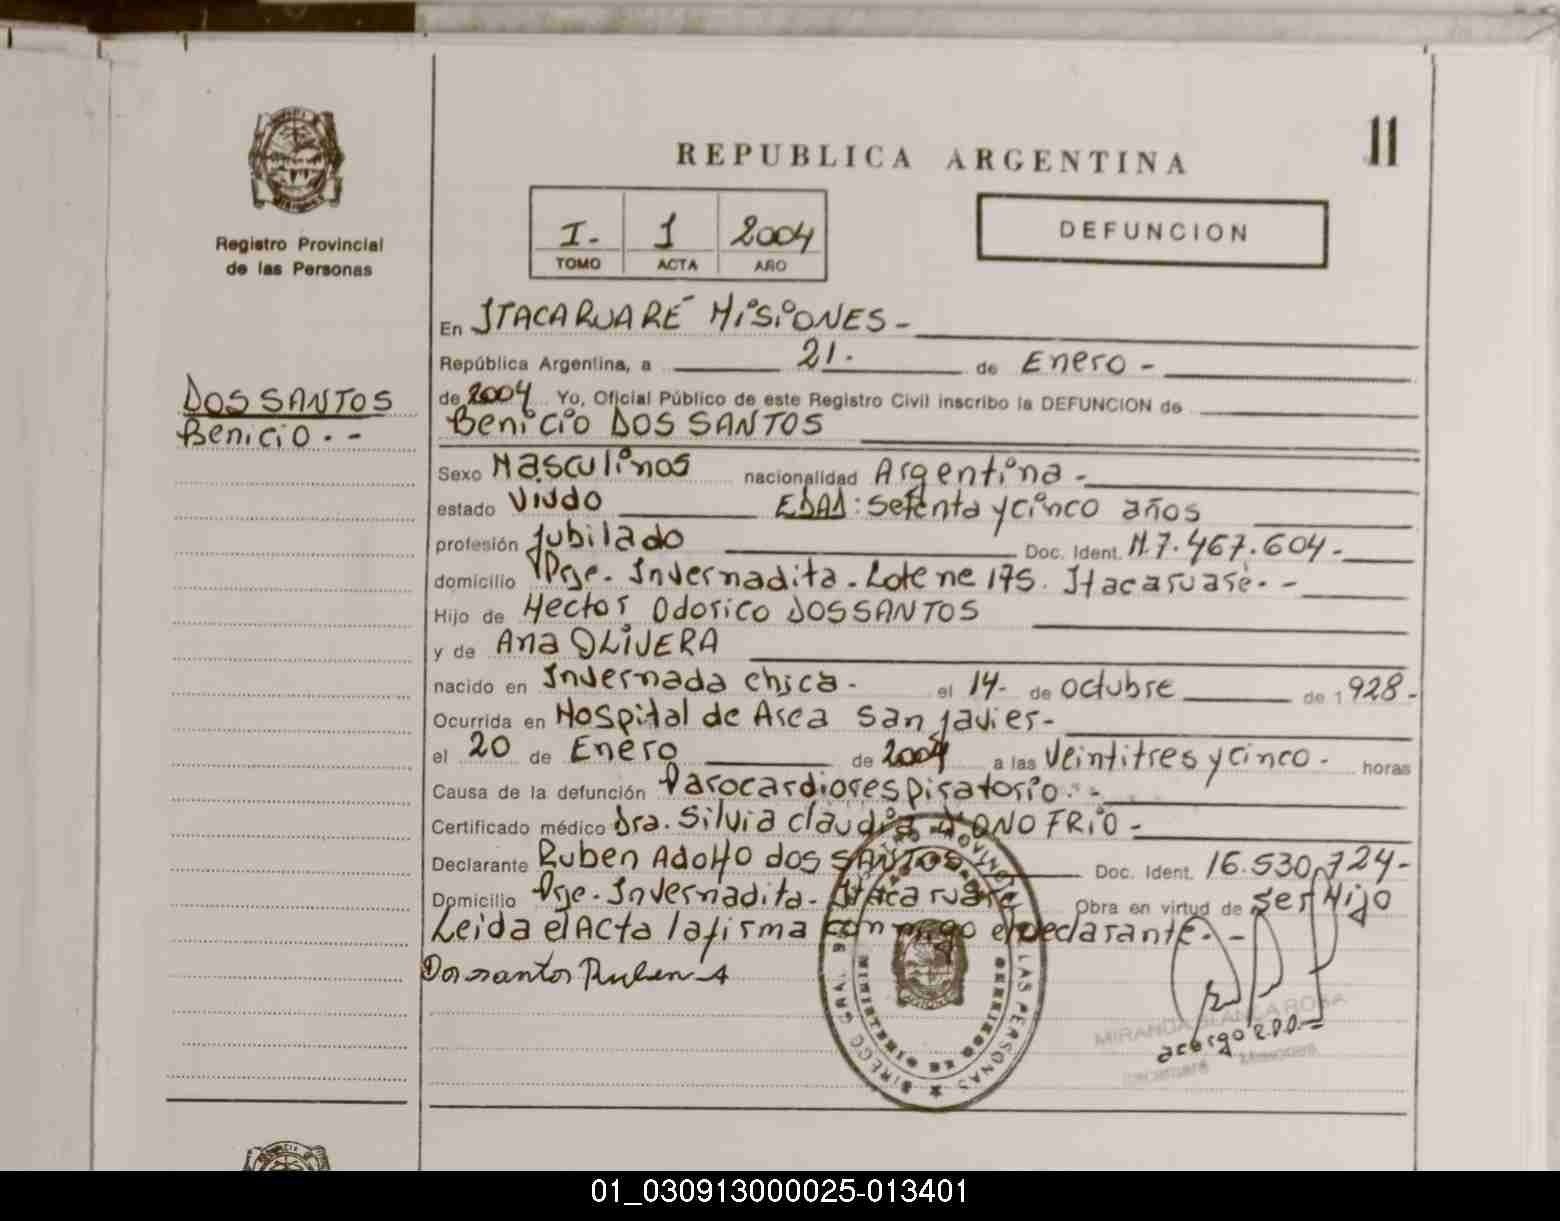 11
REPUBLICA ARGENTINA
I- 1 2004
TOMO ACTA AÑO
DEFUNCION
Registro Provincial
de las Personas
DOS SANTOS
Benicio.--
En ITACARUARÉ MISIONES-
República Argentina, a 21. de Enero-
de 2004 Yo, Oficial Público de este Registro Civil inscribo la DEFUNCION de
Benicio DOS SANTOS
Sexo Masculinos nacionalidad Argentina-
estado Viudo EDAD: Setenta y cinco años
profesión Jubilado Doc. Ident. M.7.467.604-
domicilio Pje. Invernadita. Lote ne 175. Itacaruaré.-
Hijo de Hector Odorico DOS SANTOS
y de Ana OLIVERA
nacido en Invernada chica- el 14- de octubre de 1928-
Ocurrida en Hospital de Area San Javier-
el 20 de Enero de 2004 a las Veintitres y cinco- horas
Causa de la defunción Parocardiorespiratorio.-
Certificado médico Dra. Silvia Claudia D'ONOFRIO-
Declarante Ruben Adolfo dos SANTOS Doc. Ident. 16.530.724-
Domicilio Pje. Invernadita- Itacaruaré Obra en virtud de ser Hijo
Leida el Acta la firma conmigo el declarante.-
Dos santos Ruben A
LAS PERSONAS
MIRANDA BLANCA ROSA
a cargo R.P.P.
Itacaruaré Misiones
01_030913000025-013401